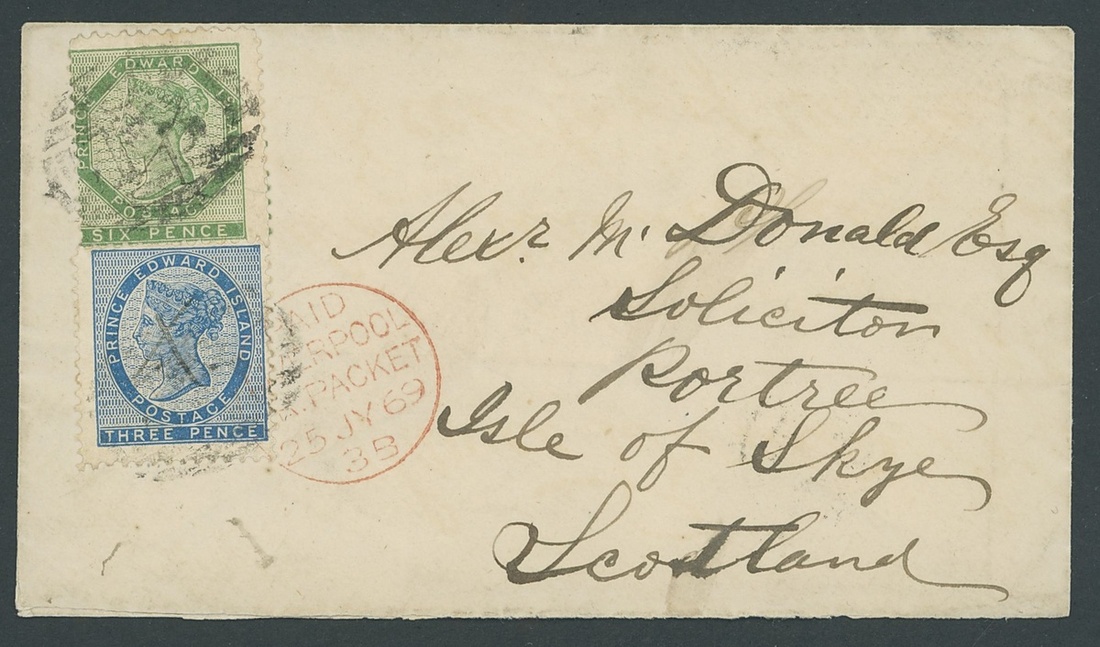 PRINCE EDWARD
POSTAG
SIX PENCE
PRINCE EDWARD ISLAND
POSTAGE
THREE PENCE
AID
ERPOOL
PACKET
25 JY 69
3B
Alexr. Mc Donald Esq
Soliciton
Portree
Isle of Skye
Scotland